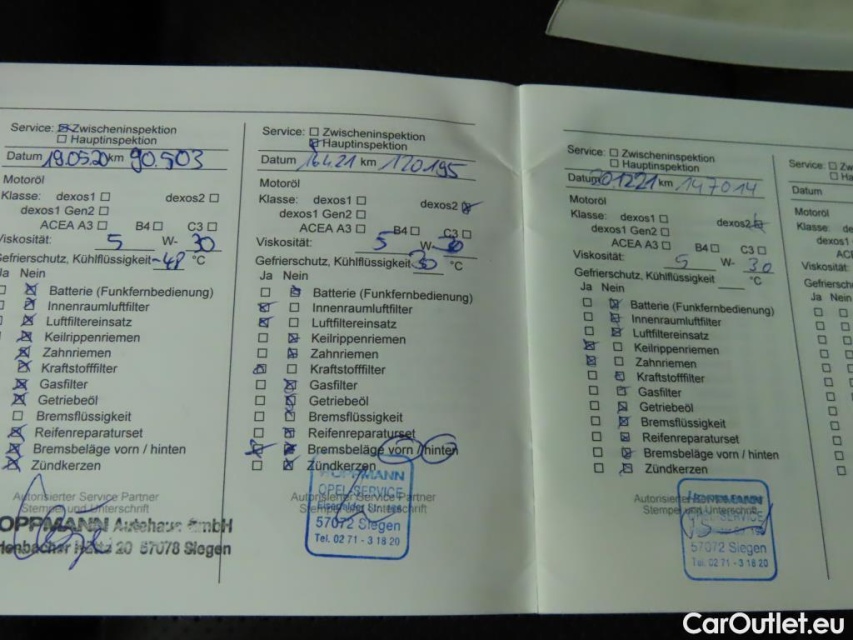 Service: ☒ Zwischeninspektion
☐ Hauptinspektion
Datum 19.05.20 km 90.503
Motoröl
Klasse: dexos1 ☐ dexos2 ☐
dexos1 Gen2 ☐
ACEA A3 ☐ B4 ☐ C3 ☐
Viskosität: 5 W- 30
Gefrierschutz, Kühlflüssigkeit -48 °C
Ja Nein
☐ ☒ Batterie (Funkfernbedienung)
☐ ☒ Innenraumluftfilter
☐ ☒ Luftfiltereinsatz
☒ Keilrippenriemen
☒ Zahnriemen
☒ Kraftstofffilter
☒ Gasfilter
☒ Getriebeöl
☐ Bremsflüssigkeit
☒ Reifenreparaturset
☒ Bremsbeläge vorn / hinten
☒ Zündkerzen
Autorisierter Service Partner
Stempel und Unterschrift
HOPPMANN Autohaus GmbH
20 57078 Siegen
Service: ☐ Zwischeninspektion
☒ Hauptinspektion
Datum 16.4.21 km 120195
Motoröl
Klasse: dexos1 ☐ dexos2 ☒
dexos1 Gen2 ☐
ACEA A3 ☐ B4 ☐ C3 ☐
Viskosität: 5 W- 30
Gefrierschutz, Kühlflüssigkeit 30 °C
Ja Nein
☐ ☒ Batterie (Funkfernbedienung)
☒ ☐ Innenraumluftfilter
☒ ☐ Luftfiltereinsatz
☐ ☒ Keilrippenriemen
☐ ☒ Zahnriemen
☒ ☐ Kraftstofffilter
☐ ☒ Gasfilter
☐ ☒ Getriebeöl
☐ ☒ Bremsflüssigkeit
☐ ☒ Reifenreparaturset
☒ ☒ Bremsbeläge vorn / hinten
☐ ☒ Zündkerzen
Autorisierter Service Partner
Stempel und Unterschrift
HOPPMANN
OPEL SERVICE
57072 Siegen
Tel. 02 71 - 3 18 20
Service: ☐ Zwischeninspektion
☐ Hauptinspektion
Datum 201221 km 147014
Motoröl
Klasse: dexos1 ☐ dexos2 ☒
dexos1 Gen2 ☐
ACEA A3 ☐ B4 ☐ C3 ☐
Viskosität: 5 W- 30
Gefrierschutz, Kühlflüssigkeit °C
Ja Nein
☐ ☒ Batterie (Funkfernbedienung)
☐ ☒ Innenraumluftfilter
☐ ☒ Luftfiltereinsatz
☒ ☐ Keilrippenriemen
☒ ☐ Zahnriemen
☐ ☒ Kraftstofffilter
☐ ☒ Gasfilter
☐ ☒ Getriebeöl
☐ ☒ Bremsflüssigkeit
☐ ☒ Reifenreparaturset
☐ ☒ Bremsbeläge vorn / hinten
☐ ☒ Zündkerzen
Autorisierter
Stempel und Unterschrift
HOPPMANN
SERVICE
57072 Siegen
Tel. 02 71 - 3 18 20
Service: ☐ Zw
☐ Ha
Datum
Motoröl
Klasse: de
dexos1
ACE
Viskosität:
Gefriersch
Ja Nein
CarOutlet.eu